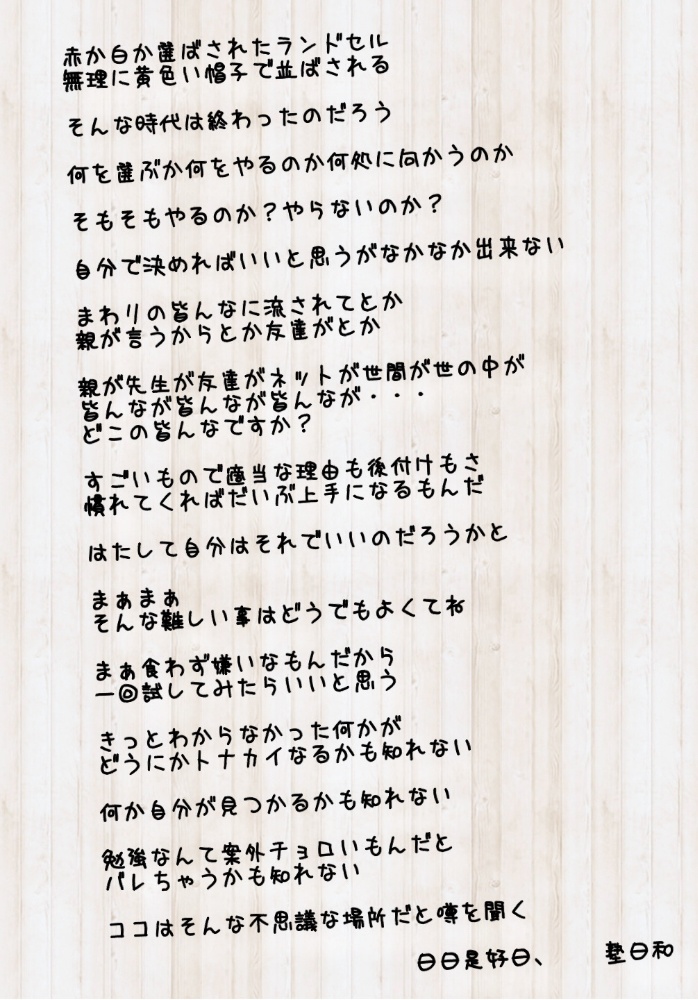 赤か白か選ばされたランドセル
無理に黄色い帽子で並ばされる
そんな時代は終わったのだろう
何を選ぶか何をやるのか何処に向かうのか
そもそもやるのか？やらないのか？
自分で決めればいいと思うがなかなか出来ない
まわりの皆んなに流されてとか
親が言うからとか友達がとか
親が先生が友達がネットが世間が世の中が
皆んなが皆んなが皆んなが・・・
どこの皆んなですか？
すごいもので適当な理由も後付けもさ
慣れてくればだいぶ上手になるもんだ
はたして自分はそれでいいのだろうかと
まぁまぁ
そんな難しい事はどうでもよくてね
まぁ食わず嫌いなもんだから
一回試してみたらいいと思う
きっとわからなかった何かが
どうにかトナカイなるかも知れない
何か自分が見つかるかも知れない
勉強なんて案外チョロいもんだと
バレちゃうかも知れない
ココはそんな不思議な場所だと噂を聞く
日日是好日、 塾日和